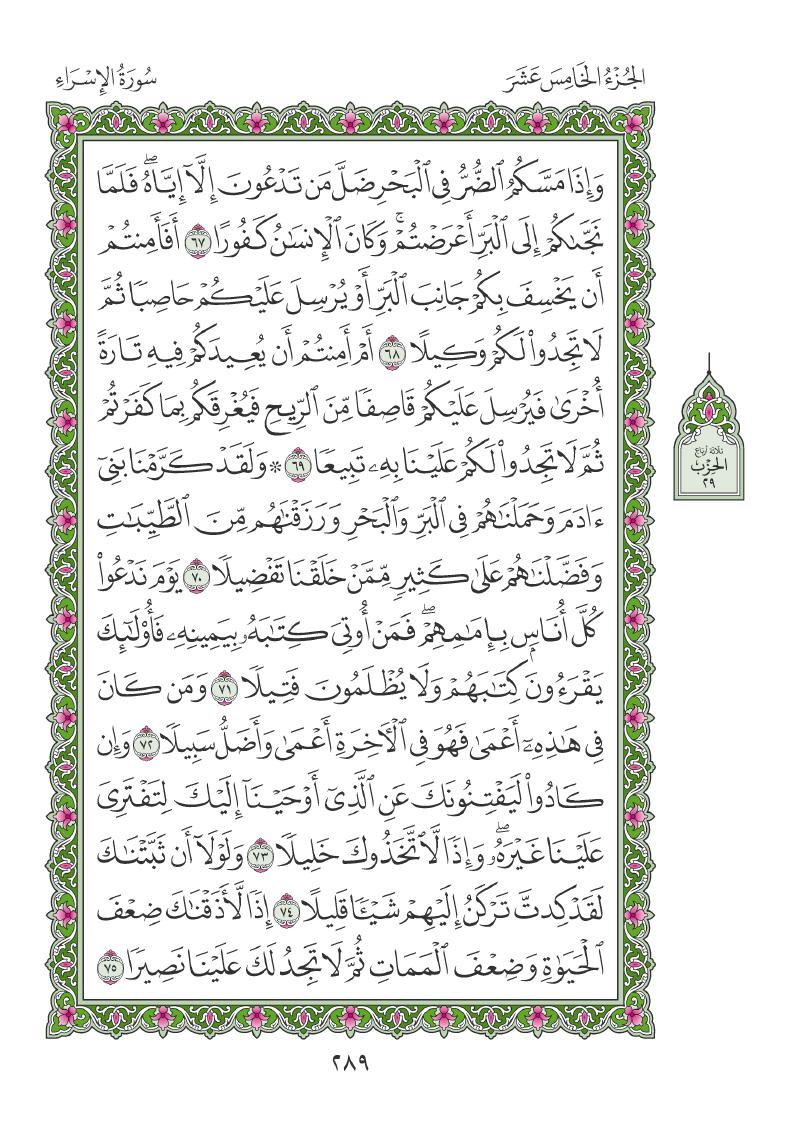 الجُزْءُ الخَامِسَ عَشَرَ
سُورَةُ الإِسْرَاءِ
وَإِذَا مَسَّكُمُ ٱلضُّرُّ فِي ٱلْبَحْرِ ضَلَّ مَن تَدْعُونَ إِلَّآ إِيَّاهُۖ فَلَمَّا
نَجَّىٰكُمْ إِلَى ٱلْبَرِّ أَعْرَضْتُمْۚ وَكَانَ ٱلْإِنسَٰنُ كَفُورًا ٦٧ أَفَأَمِنتُمْ
أَن يَخْسِفَ بِكُمْ جَانِبَ ٱلْبَرِّ أَوْ يُرْسِلَ عَلَيْكُمْ حَاصِبًا ثُمَّ
لَا تَجِدُوا۟ لَكُمْ وَكِيلًا ٦٨ أَمْ أَمِنتُمْ أَن يُعِيدَكُمْ فِيهِ تَارَةً
أُخْرَىٰ فَيُرْسِلَ عَلَيْكُمْ قَاصِفًا مِّنَ ٱلرِّيحِ فَيُغْرِقَكُم بِمَا كَفَرْتُمْ
ثُمَّ لَا تَجِدُوا۟ لَكُمْ عَلَيْنَا بِهِۦ تَبِيعًا ٦٩ ۞ وَلَقَدْ كَرَّمْنَا بَنِيٓ
ءَادَمَ وَحَمَلْنَٰهُمْ فِي ٱلْبَرِّ وَٱلْبَحْرِ وَرَزَقْنَٰهُم مِّنَ ٱلطَّيِّبَٰتِ
وَفَضَّلْنَٰهُمْ عَلَىٰ كَثِيرٍ مِّمَّنْ خَلَقْنَا تَفْضِيلًا ٧٠ يَوْمَ نَدْعُوا۟
كُلَّ أُنَاسٍۭ بِإِمَٰمِهِمْۖ فَمَنْ أُوتِيَ كِتَٰبَهُۥ بِيَمِينِهِۦ فَأُو۟لَٰٓئِكَ
يَقْرَءُونَ كِتَٰبَهُمْ وَلَا يُظْلَمُونَ فَتِيلًا ٧١ وَمَن كَانَ
فِي هَٰذِهِۦٓ أَعْمَىٰ فَهُوَ فِي ٱلْءَاخِرَةِ أَعْمَىٰ وَأَضَلُّ سَبِيلًا ٧٢ وَإِن
كَادُوا۟ لَيَفْتِنُونَكَ عَنِ ٱلَّذِيٓ أَوْحَيْنَآ إِلَيْكَ لِتَفْتَرِيَ
عَلَيْنَا غَيْرَهُۥۖ وَإِذًا لَّٱتَّخَذُوكَ خَلِيلًا ٧٣ وَلَوْلَآ أَن ثَبَّتْنَٰكَ
لَقَدْ كِدتَّ تَرْكَنُ إِلَيْهِمْ شَيْـًٔا قَلِيلًا ٧٤ إِذًا لَّأَذَقْنَٰكَ ضِعْفَ
ٱلْحَيَوٰةِ وَضِعْفَ ٱلْمَمَاتِ ثُمَّ لَا تَجِدُ لَكَ عَلَيْنَا نَصِيرًا ٧٥
ثلاثة أرباع
الحزب
٢٩
٢٨٩